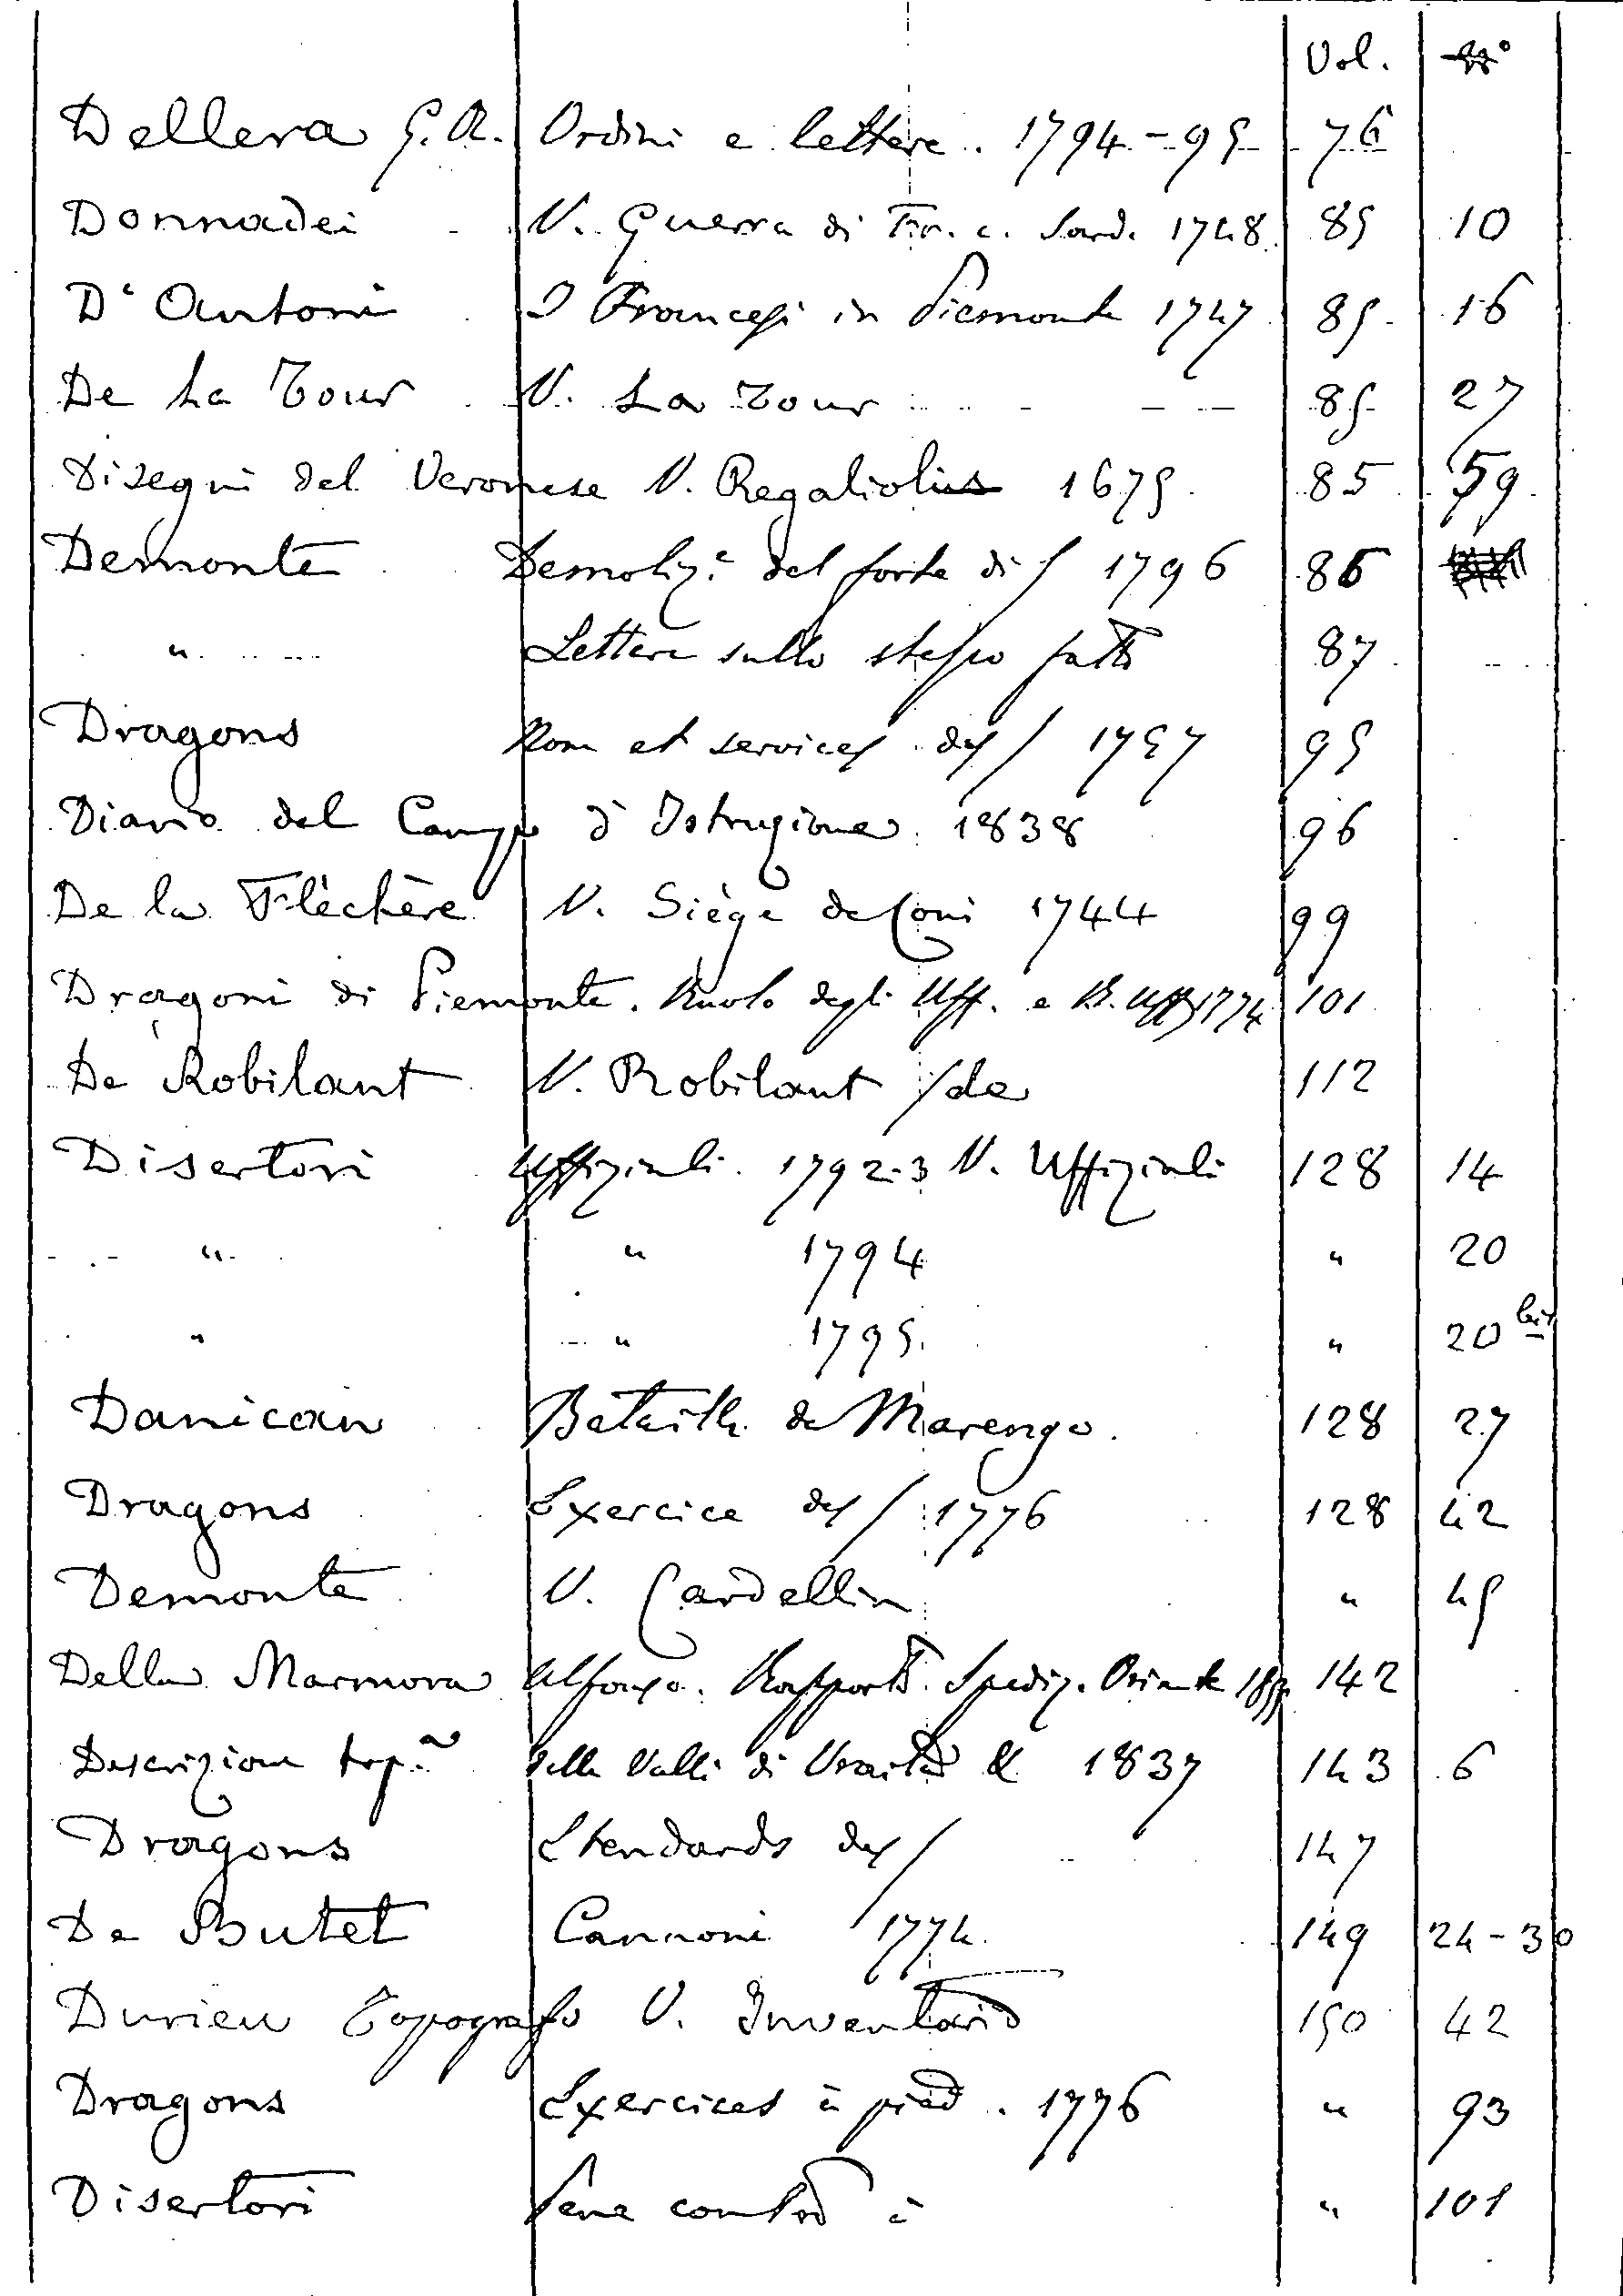 Vol. N°
Dellera G. A. Ordini e lettere. 1794-95 76
Donnadei V. Guerra di Fr. c. Sard. 1748 85 10
D'Antoni I Francesi in Piemonte 1747 85 16
De La Tour V. La Tour 85 27
Disegni del Veronese V. Regaliolius 1675 85 59
Demonte Demoliz.e del forte di / 1796 86
" Lettere sullo stesso fatto 87
Dragons Nom et services des / 1757 95
Diario del Campo d'Istruzione 1838 96
De la Flèchère V. Siège de Coni 1744 99
Dragoni di Piemonte. Ruolo degli Uff. e B. Uff. 1774 101
De Robilant V. Robilant /de 112
Disertori Uffiziali. 1792-3 V. Uffiziali 128 14
" " 1794 " 20
" " 1795 " 20 bis
Danican Bataille de Marengo. 128 27
Dragons Exercice des / 1776 128 42
Demonte V. Cardellin " 45
Della Marmora Alfonso. Rapporto Spediz. Oriente 142
Descrizione top.a delle Valli di Vraita & 1837 143 6
Dragons Etendards des / 147
De Butet Cannoni 1774 149 24-30
Durieu Topografo V. Inventario 150 42
Dragons Exercices à pied. 1776 " 93
Disertori Pene contro i " 101